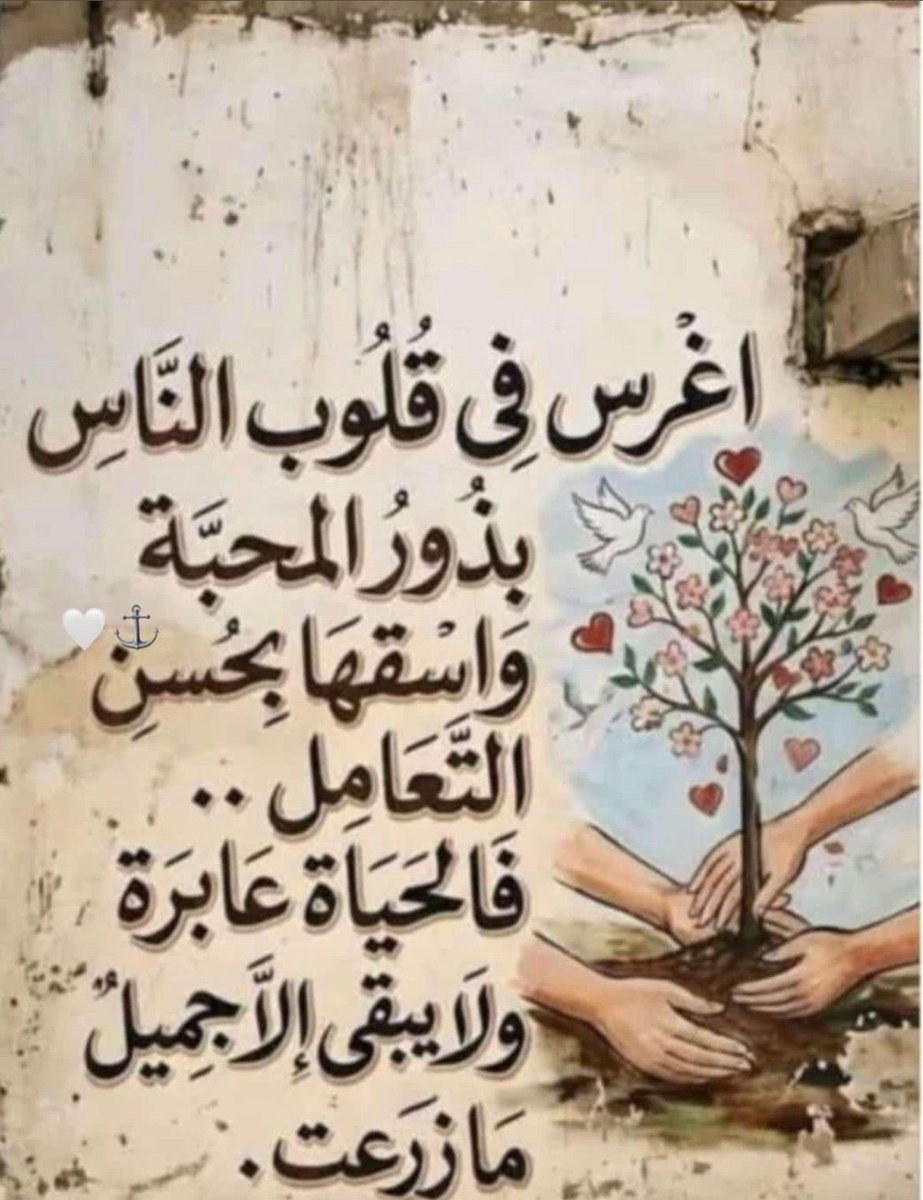 اغْرس فِى قُلُوب النَّاسِ
بذُورُ المحبَّة
وَاسْقهَا بِحُسنِ
التَّعَامِل ..
فَالحَيَاة عَابرَة
ولَا يبقى إلاَّ جِميلٌ
مَا زرَعت .